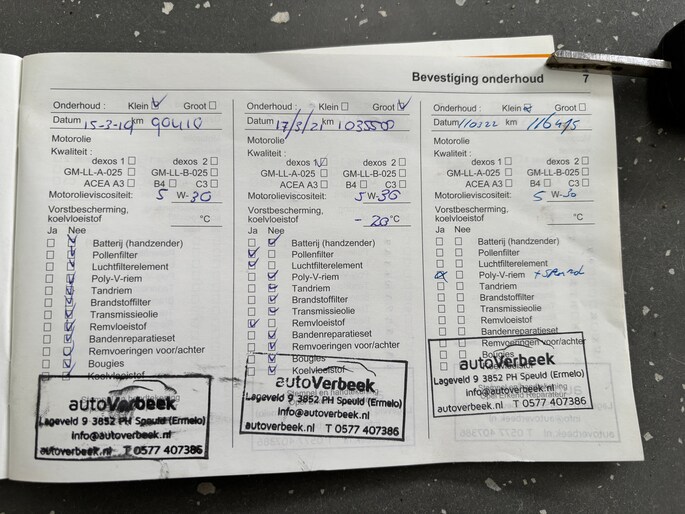 Bevestiging onderhoud 7
Onderhoud : Klein Groot
Datum 15-3-19 km 90410
Motorolie
Kwaliteit :
dexos 1 dexos 2
GM-LL-A-025 GM-LL-B-025
ACEA A3 B4 C3
Motorolieviscositeit: 5 W-30
Vorstbescherming,
koelvloeistof °C
Ja Nee
Batterij (handzender)
Pollenfilter
Luchtfilterelement
Poly-V-riem
Tandriem
Brandstoffilter
Transmissieolie
Remvloeistof
Bandenreparatieset
Remvoeringen voor/achter
Bougies
Koelvloeistof
autoVerbeek
Lageveld 9 3852 PH Speuld (Ermelo)
info@autoverbeek.nl
autoverbeek.nl T 0577 407386
Onderhoud : Klein Groot
Datum 17/3/21 km
Motorolie
Kwaliteit :
dexos 1 dexos 2
GM-LL-A-025 GM-LL-B-025
ACEA A3 B4 C3
Motorolieviscositeit: 5 W-30
Vorstbescherming,
koelvloeistof - 20 °C
Ja Nee
Batterij (handzender)
Pollenfilter
Luchtfilterelement
Poly-V-riem
Tandriem
Brandstoffilter
Transmissieolie
Remvloeistof
Bandenreparatieset
Remvoeringen voor/achter
Bougies
Koelvloeistof
Stempel en handtekening
autoVerbeek
Lageveld 9 3852 PH Speuld (Ermelo)
info@autoverbeek.nl
autoverbeek.nl T 0577 407386
Onderhoud : Klein Groot
Datum 110322 km 116415
Motorolie
Kwaliteit :
dexos 1 dexos 2
GM-LL-A-025 GM-LL-B-025
ACEA A3 B4 C3
Motorolieviscositeit: 5 W-30
Vorstbescherming,
koelvloeistof °C
Ja Nee
Batterij (handzender)
Pollenfilter
Luchtfilterelement
Poly-V-riem
Tandriem
Brandstoffilter
Transmissieolie
Remvloeistof
Bandenreparatieset
Remvoeringen voor/achter
Bougies
Koelvloeistof
autoVerbeek
Lageveld 9 3852 PH Speuld (Ermelo)
info@autoverbeek.nl
autoverbeek.nl T 0577 407386